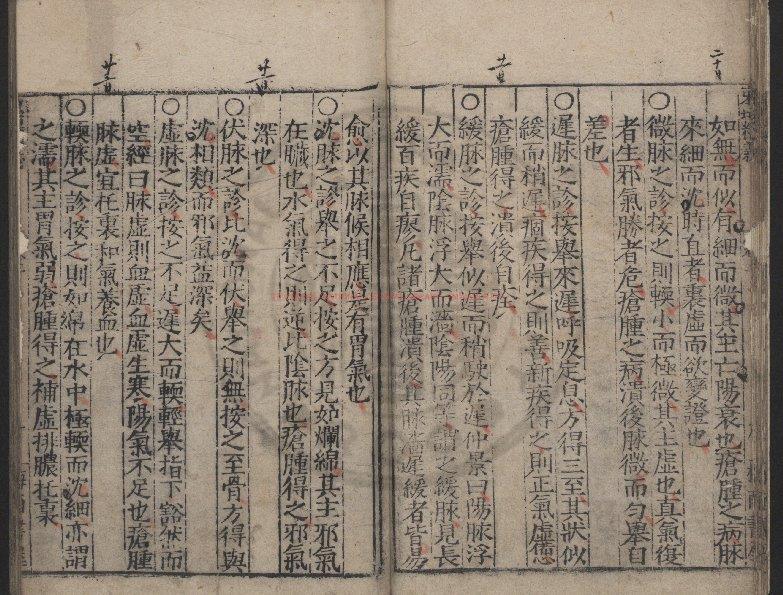 如無而似有細而微其主亡陽衰也瘡腫之病脉
來細而沈時直者裏虛而欲變證也
○微脉之診按之則輭小而極微其主虛也真氣復
者生邪氣勝者危瘡腫之病潰後脉微而匀舉自
差也
○遲脉之診按舉來遲呼吸定息方得三至其狀似
緩而稍遲痼疾得之則善新疾得之則正氣虛憊
瘡腫得之潰後自痊
○緩脉之診按舉似遲而稍駛於遲仲景曰陽脉浮
大而濡陰脉浮大而濡陰陽同等謂之緩脉見長
緩百疾自瘳凢諸瘡腫潰後其脉濇遲緩者皆易
愈以其脉候相應是有胃氣也
○沈脉之診舉之不足按之方見如爛綿其主邪氣
在臟也水氣得之則逆此陰脉也瘡腫得之邪氣
深也
○伏脉之診比沈而伏舉之則無按之至骨方得與
沈相類而邪氣益深矣
○虛脉之診按之不足遲大而輭輕舉指下豁然而
空經曰脉虛則血虛血虛生寒陽氣不足也瘡腫
脉虛宜托裏和氣養血也
○輭脉之診按之則如綿在水中極輭而沈細亦謂
之濡其主胃氣弱瘡腫得之補虛排膿托裏